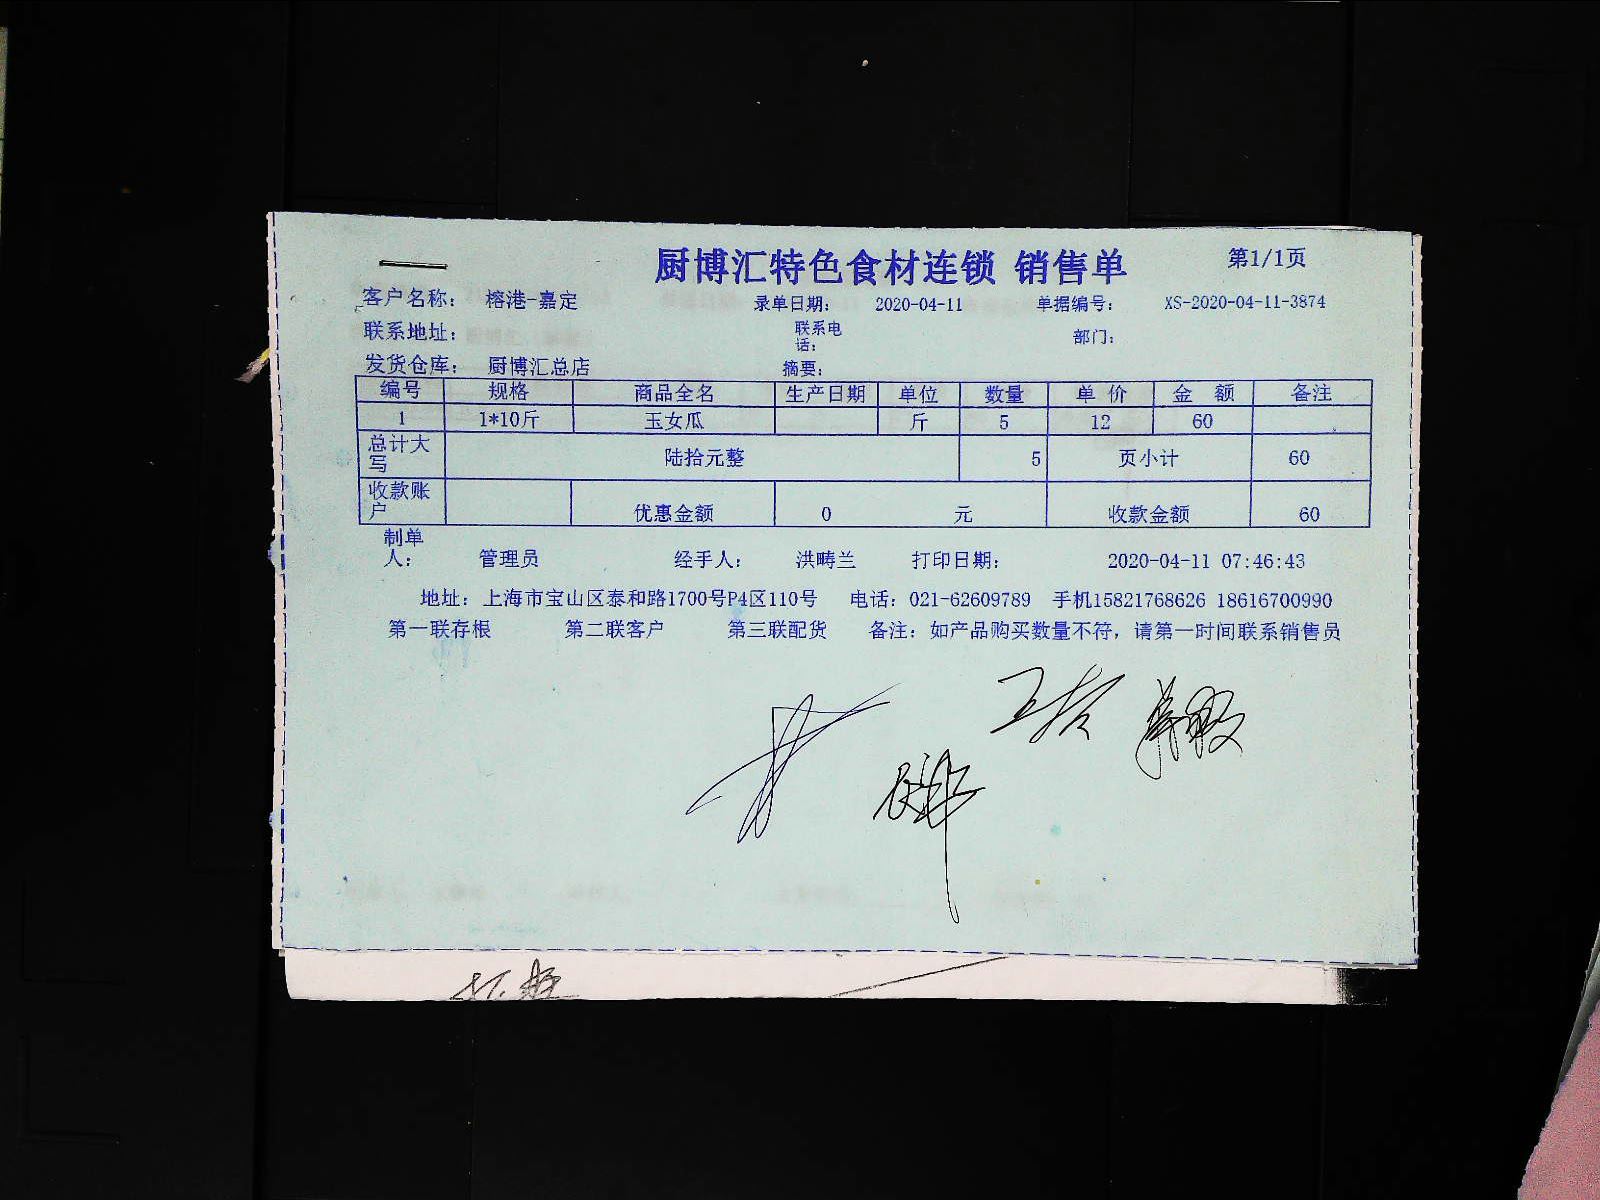 厨博汇特色食材连锁 销售单 第1/1页
客户名称: 榕港-嘉定 录单日期: 2020-04-11 单据编号: XS-2020-04-11-3874
联系地址: 联系电话: 部门:
发货仓库: 厨博汇总店 摘要:
编号 规格 商品全名 生产日期 单位 数量 单价 金额 备注
1 1*10斤 玉女瓜 斤 5 12 60
总计大写 陆拾元整 5 页小计 60
收款账户 优惠金额 0 元 收款金额 60
制单人: 管理员 经手人: 洪畴兰 打印日期: 2020-04-11 07:46:43
地址: 上海市宝山区泰和路1700号P4区110号 电话: 021-62609789 手机15821768626 18616700990
第一联存根 第二联客户 第三联配货 备注: 如产品购买数量不符, 请第一时间联系销售员